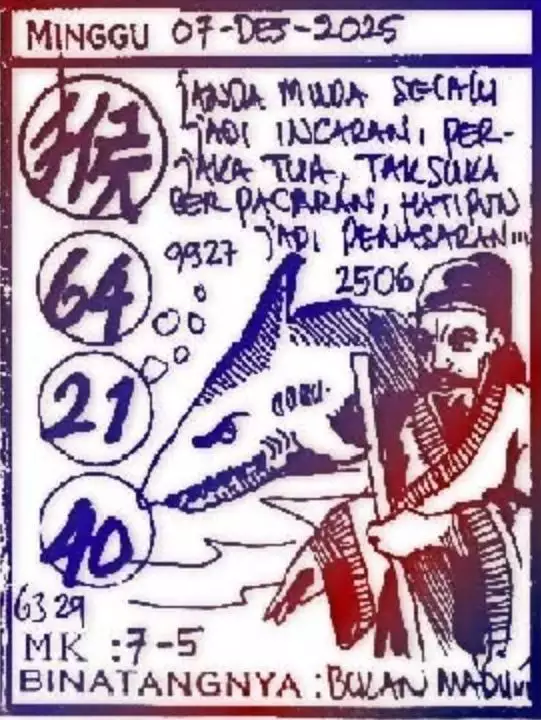 MINGGU 07-DES-2025
猴
JANDA MUDA SELALU
JADI INCARAN, PER-
JAKA TUA, TAK SUKA
BERPACARAN, HATIPUN
JADI PENASARAN...
9927
2506
64
21
40
6329
MK :7-5
BINATANGNYA : BULAN MADU